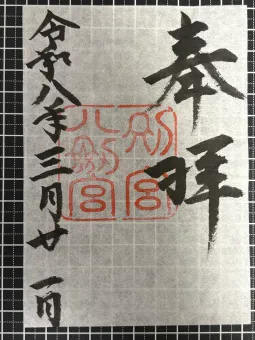 奉拝
別宮
八劍宮
令和八年三月廿一日